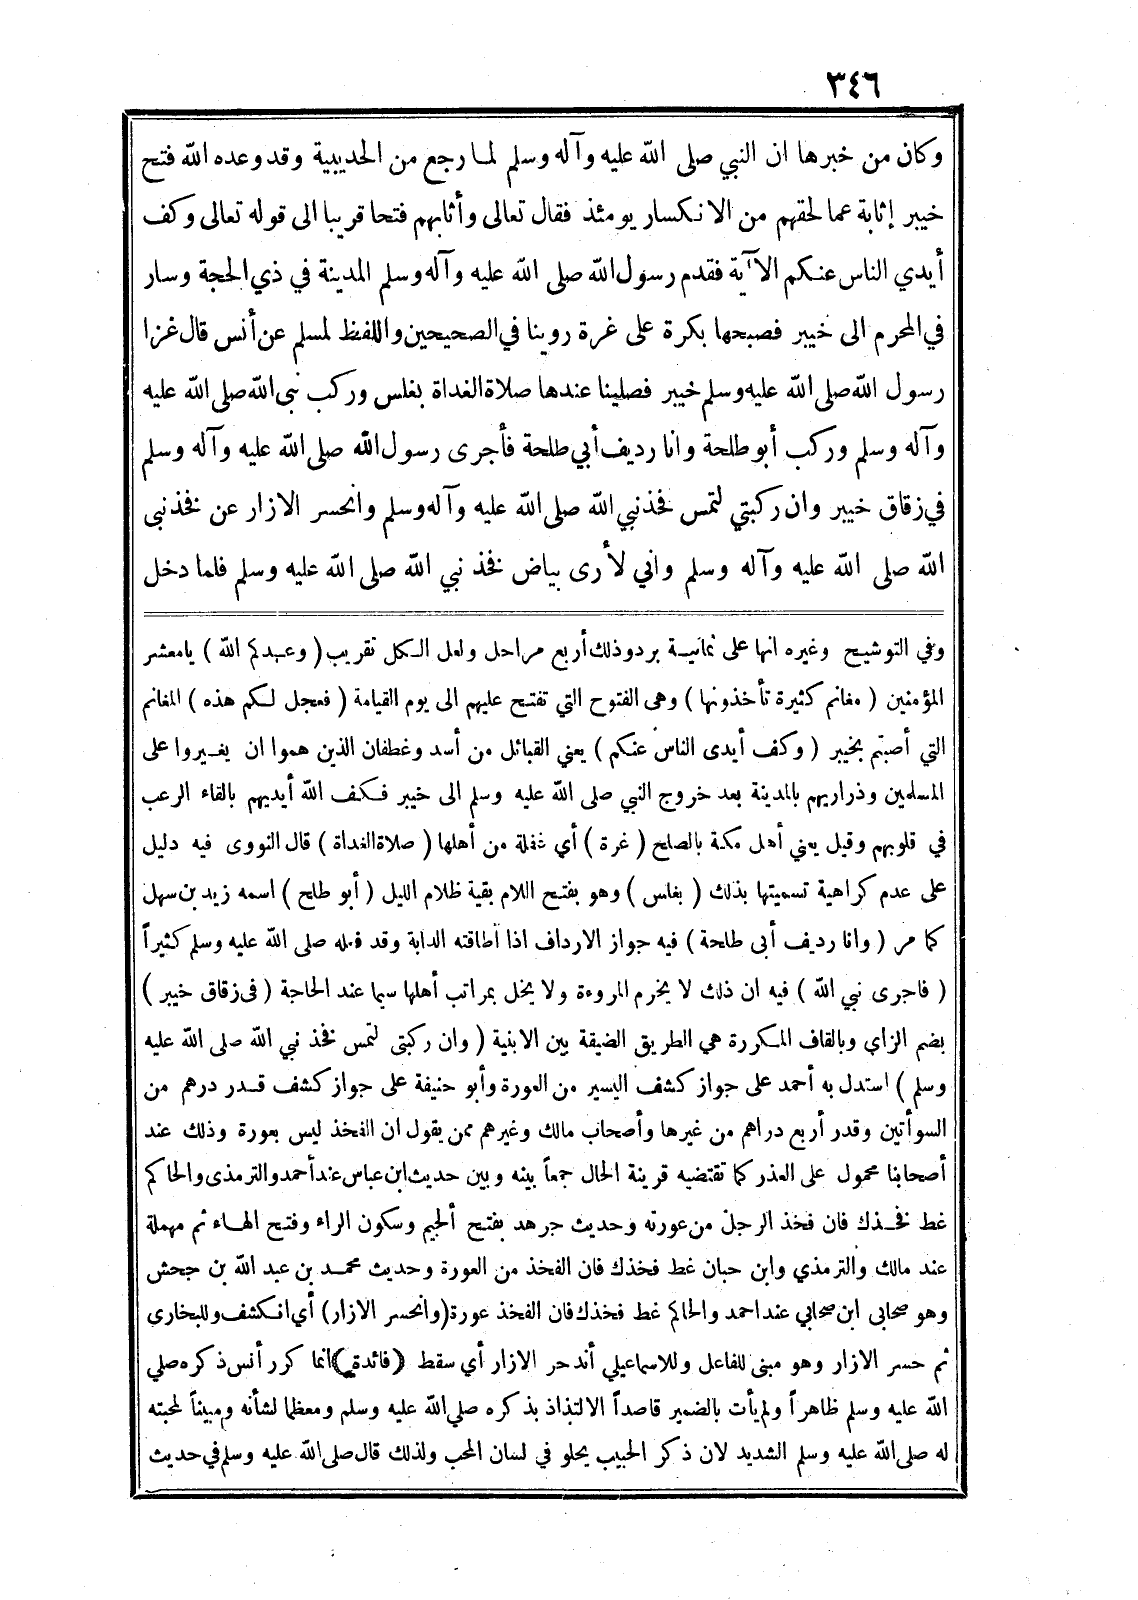 ٣٤٦
وكان من خبرها ان النبي صلى الله عليه وآله وسلم لما رجع من الحديبية وقد وعده الله فتح
خيبر إثابة عما لحقهم من الانكسار يومئذ فقال تعالى وأثابهم فتحا قريبا الى قوله تعالى وكف
أيدي الناس عنكم الآية فقدم رسول الله صلى الله عليه وآله وسلم المدينة في ذي الحجة وسار
في المحرم الى خيبر فصبحها بكرة على غرة روينا في الصحيحين واللفظ لمسلم عن أنس قال غزا
رسول الله صلى الله عليه وسلم خيبر فصلينا عندها صلاة الغداة بغلس وركب نبى الله صلى الله عليه
وآله وسلم وركب أبو طلحة وانا رديف أبي طلحة فأجرى رسول الله صلى الله عليه وآله وسلم
في زقاق خيبر وان ركبتي لتمس فخذ نبي الله صلى الله عليه وآله وسلم وانحسر الازار عن فخذ نبى
الله صلى الله عليه وآله وسلم واني لأرى بياض فخذ نبي الله صلى الله عليه وسلم فلما دخل
وفي التوشيح وغيره انها على ثمانية برد وذلك أربع مراحل ولعل الكل تقريب ( وعدكم الله ) يامعشر
المؤمنين ( مغانم كثيرة تأخذونها ) وهى الفتوح التي تفتح عليهم الى يوم القيامة ( فعجل لكم هذه ) المغانم
التي أصبتم بخيبر ( وكف أيدى الناس عنكم ) يعني القبائل من أسد وغطفان الذين هموا ان يغيروا على
المسلمين وذراريهم بالمدينة بعد خروج النبي صلى الله عليه وسلم الى خيبر فكف الله أيديهم بالقاء الرعب
في قلوبهم وقيل يعني أهل مكة بالصلح ( غرة ) أي غفلة من أهلها ( صلاة الغداة ) قال النووى فيه دليل
على عدم كراهية تسميتها بذلك ( بغلس ) وهو بفتح اللام بقية ظلام الليل ( أبو طلح ) اسمه زيد بن سهل
كما مر ( وانا رديف أبى طلحة ) فيه جواز الارداف اذا أطاقته الدابة وقد فعله صلى الله عليه وسلم كثيراً
( فاجرى نبي الله ) فيه ان ذلك لا يخرم المروءة ولا يخل بمراتب أهلها سيما عند الحاجة ( فى زقاق خيبر )
بضم الزاي وبالقاف المكررة هي الطريق الضيقة بين الابنية ( وان ركبتى لتمس فخذ نبي الله صلى الله عليه
وسلم ) استدل به أحمد على جواز كشف اليسير من العورة وأبو حنيفة على جواز كشف قدر درهم من
السوأتين وقدر أربع دراهم من غيرها وأصحاب مالك وغيرهم ممن يقول ان الفخذ ليس بعورة وذلك عند
أصحابنا محمول على العذر كما تقتضيه قرينة الحال جمعاً بينه وبين حديث ابن عباس عند أحمد والترمذى والحاكم
غط فخذك فان فخذ الرجل من عورته وحديث جرهد بفتح الجيم وسكون الراء وفتح الهاء ثم مهملة
عند مالك والترمذي وابن حبان غط فخذك فان الفخذ من العورة وحديث محمد بن عبد الله بن جحش
وهو صحابى ابن صحابي عند احمد والحاكم غط فخذك فان الفخذ عورة (وانحسر الازار) أي انكشف وللبخارى
ثم حسر الازار وهو مبنى للفاعل وللاسماعيلي أندحر الازار أي سقط (فائدة) انما كرر أنس ذكره صلي
الله عليه وسلم ظاهراً ولم يأت بالضمير قاصداً الالتذاذ بذكره صلي الله عليه وسلم ومعظما لشأنه ومبيناً لمحبته
له صلى الله عليه وسلم الشديد لان ذكر الحبيب يحلو في لسان المحب ولذلك قال صلى الله عليه وسلم في حديث